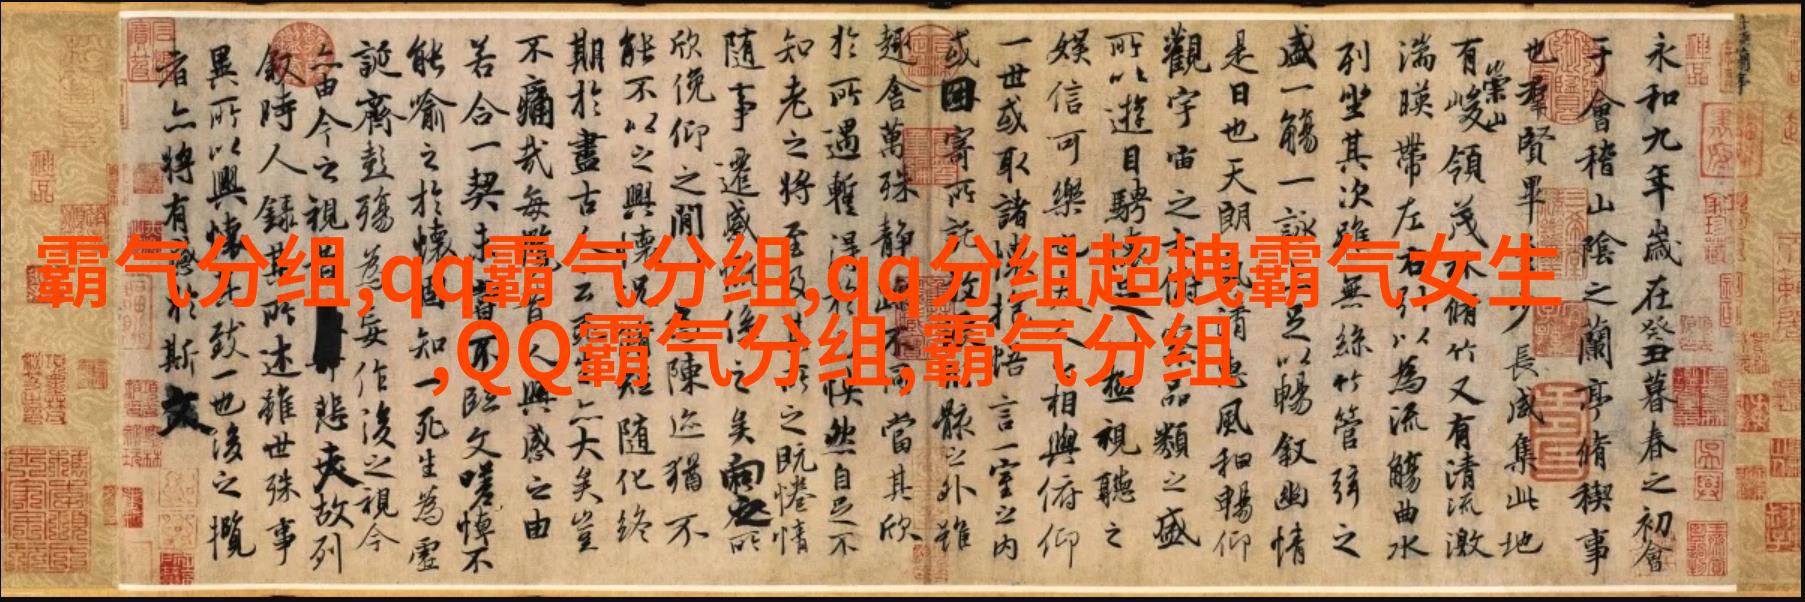 霸气分组,qq霸气分组,qq分组超拽霸气女生
,QQ霸气分组,霸气分组
永和九年歲在癸丑暮春之初會
于會稽山陰之蘭亭脩稧事
也羣賢畢少長咸集此地
有崇山峻領茂林脩竹又有清流激
湍暎帶左右引以為流觴曲水
列坐其次雖無絲竹管弦之
盛一觴一詠足以暢叙幽情
是日也天朗清惠風和暢仰
觀宇宙之大俯品類之盛
所以遊目騁足極視聽之
娛信可樂也人相與俯仰
一世或取諸懷悟言一室之内
或因寄所託骸之外雖
趣舍萬殊静不當其欣
於所遇暫得於怏然自足不
知老之將至及之既惓情
隨事遷感係之矣向之所
欣俛仰之閒陳迹猶不
能不以之興懷況短隨化終
期於盡古人云亦大矣豈
不痛哉每攬昔人興感之由
若合一契未嘗不臨文嗟悼不
能喻之於懷固知一死生為虛
誕齊彭殤為妄作後之視今
亦由今之視昔悲夫故列
叙時人録其所述雖世殊事
異所以興懷致一也後之攬
者亦將有於斯文